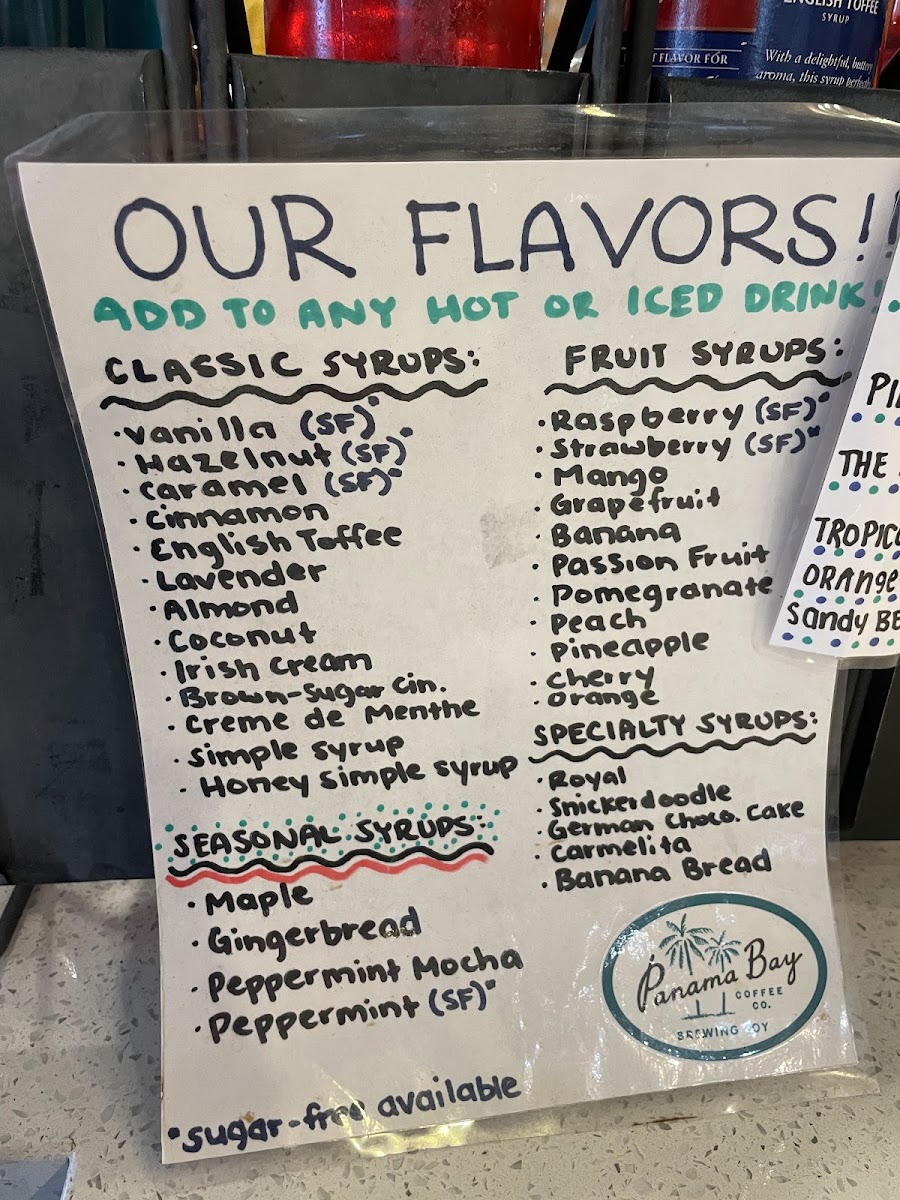 ENGLISH TOFFEE
SYRUP
T FLAVOR FOR
With a delightful, buttery
aroma, this syrup perfectly
OUR FLAVORS!
ADD TO ANY HOT OR ICED DRINK!
CLASSIC SYRUPS:
·Vanilla (SF)*
·Hazelnut (SF)*
·Caramel (SF)*
·Cinnamon
·English Toffee
·Lavender
·Almond
·Coconut
·Irish Cream
·Brown-Sugar Cin.
·Creme de Menthe
·Simple syrup
·Honey simple syrup
SEASONAL SYRUPS:
·Maple
·Gingerbread
·Peppermint Mocha
·Peppermint (SF)*
*sugar-free available
FRUIT SYRUPS:
·Raspberry (SF)*
·Strawberry (SF)*
·Mango
·Grapefruit
·Banana
·Passion Fruit
·Pomegranate
·Peach
·Pineapple
·Cherry
·Orange
SPECIALTY SYRUPS:
·Royal
·Snickerdoodle
·German Choco. Cake
·Carmelita
·Banana Bread
Panama Bay
COFFEE
CO.
BREWING JOY
THE
TROPIC
ORANGE
Sandy BE